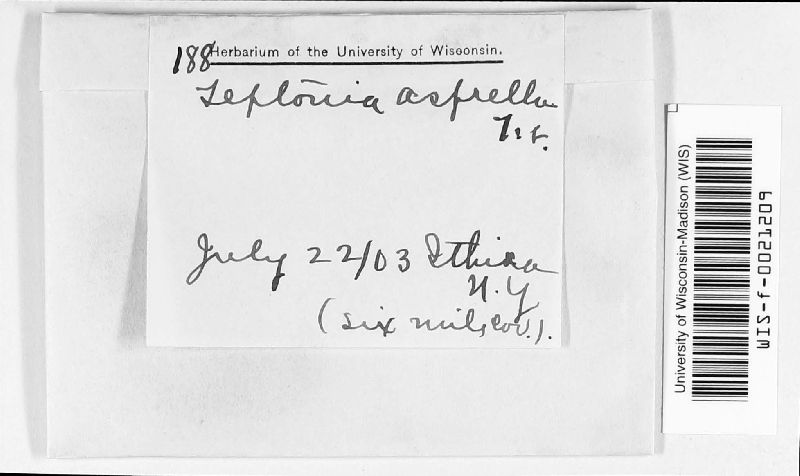 188 Herbarium of the University of Wisconsin.
Leptonia asprella
Fr.
July 22/03 Ithica
N.Y
(six mile cov.).
University of Wisconsin-Madison (WIS)
WIS-f-0021209